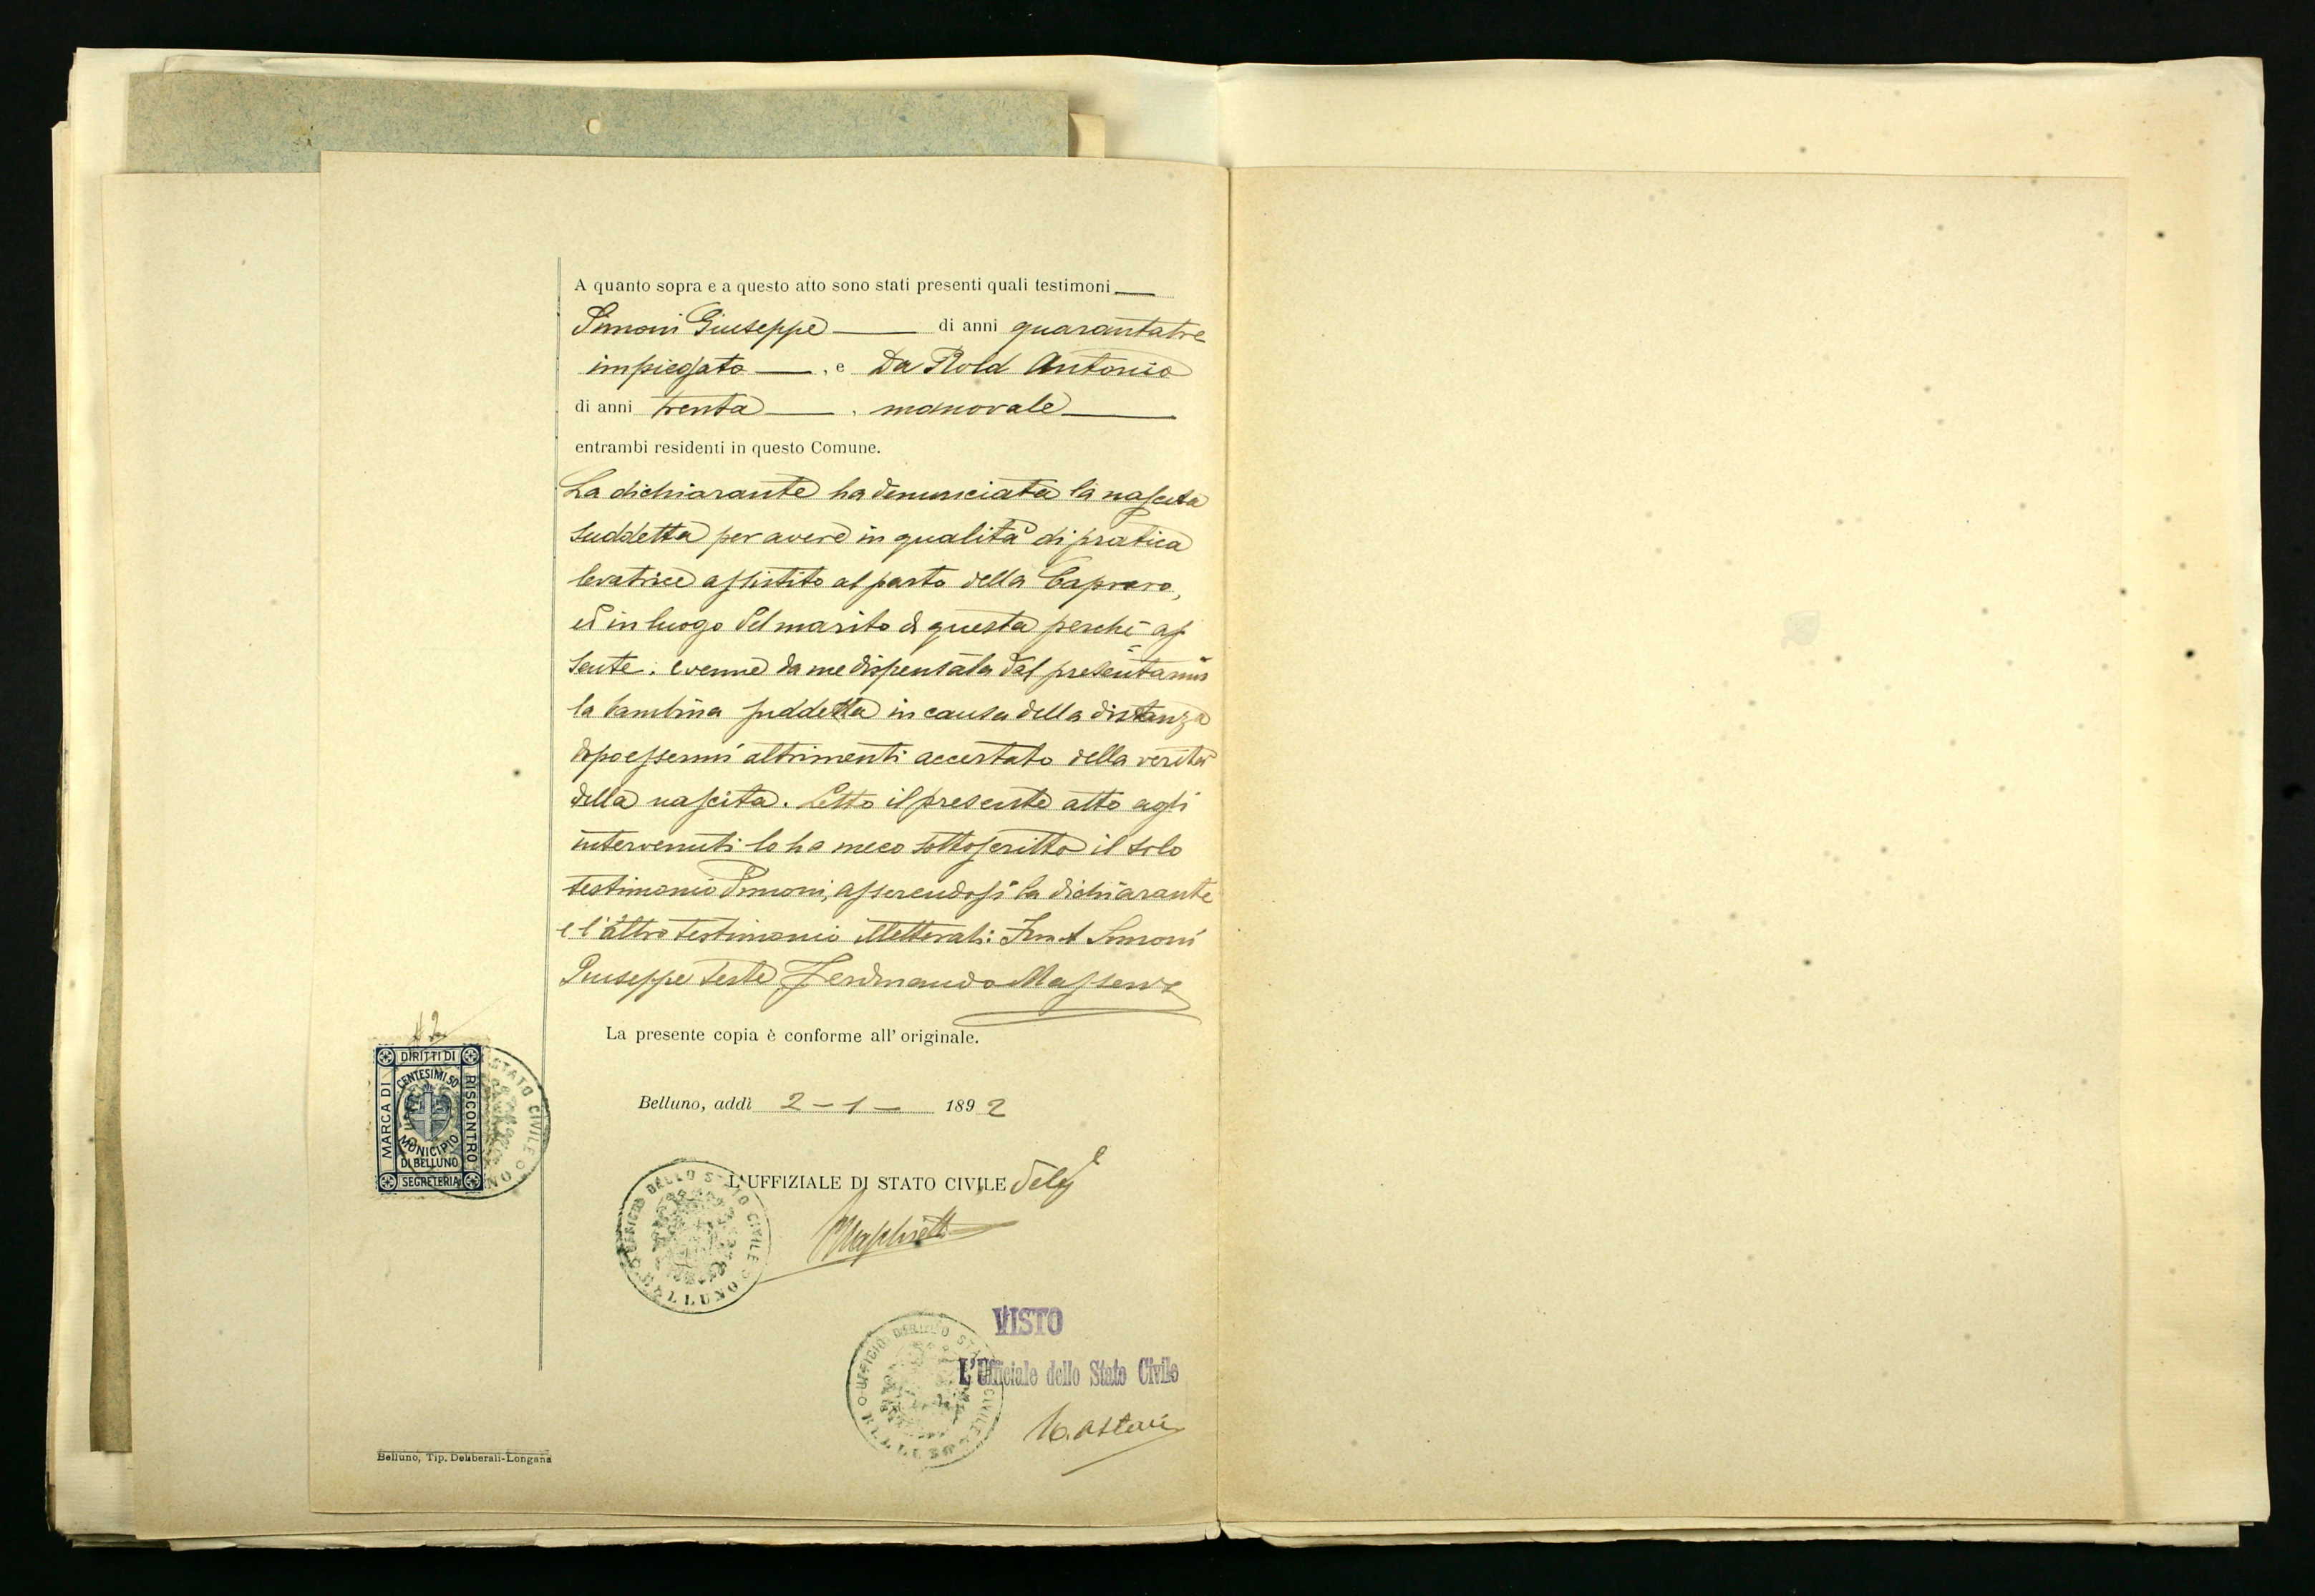 A quanto sopra e a questo atto sono stati presenti quali testimoni
Simoni Giuseppe di anni quarantatre
impiegato , e Da Rold Antonio
di anni trenta , manovale
entrambi residenti in questo Comune.
La dichiarante ha denunciata la nascita
suddetta per avere in qualità di pratica
levatrice assistito al parto della Capraro,
ed in luogo del marito di questa perchè as
sente. e venne da me dispensata dal presentarmi
la bambina suddetta in causa della distanza
dopo essermi altrimenti accertato della verità
della nascita. Letto il presente atto agli
intervenuti lo ha meco sottoscritto il solo
testimonio Simoni, asserendosi la dichiarante
e l'altro testimonio illetterati: Simoni
Giuseppe teste Ferdinando
La presente copia è conforme all' originale.
Belluno, addì 2-1- 1892
L'UFFIZIALE DI STATO CIVILE
UFFICIO DELLO STATO CIVILE
BELLUNO
VISTO
L'Ufficiale dello Stato Civile
UFFICIO DELLO STATO CIVILE
BELLUNO
MARCA DI
DIRITTI DI
RISCONTRO
CENTESIMI 50
MUNICIPIO
DI BELLUNO
SEGRETERIA
STATO CIVILE
Belluno, Tip. Deliberali-Longana